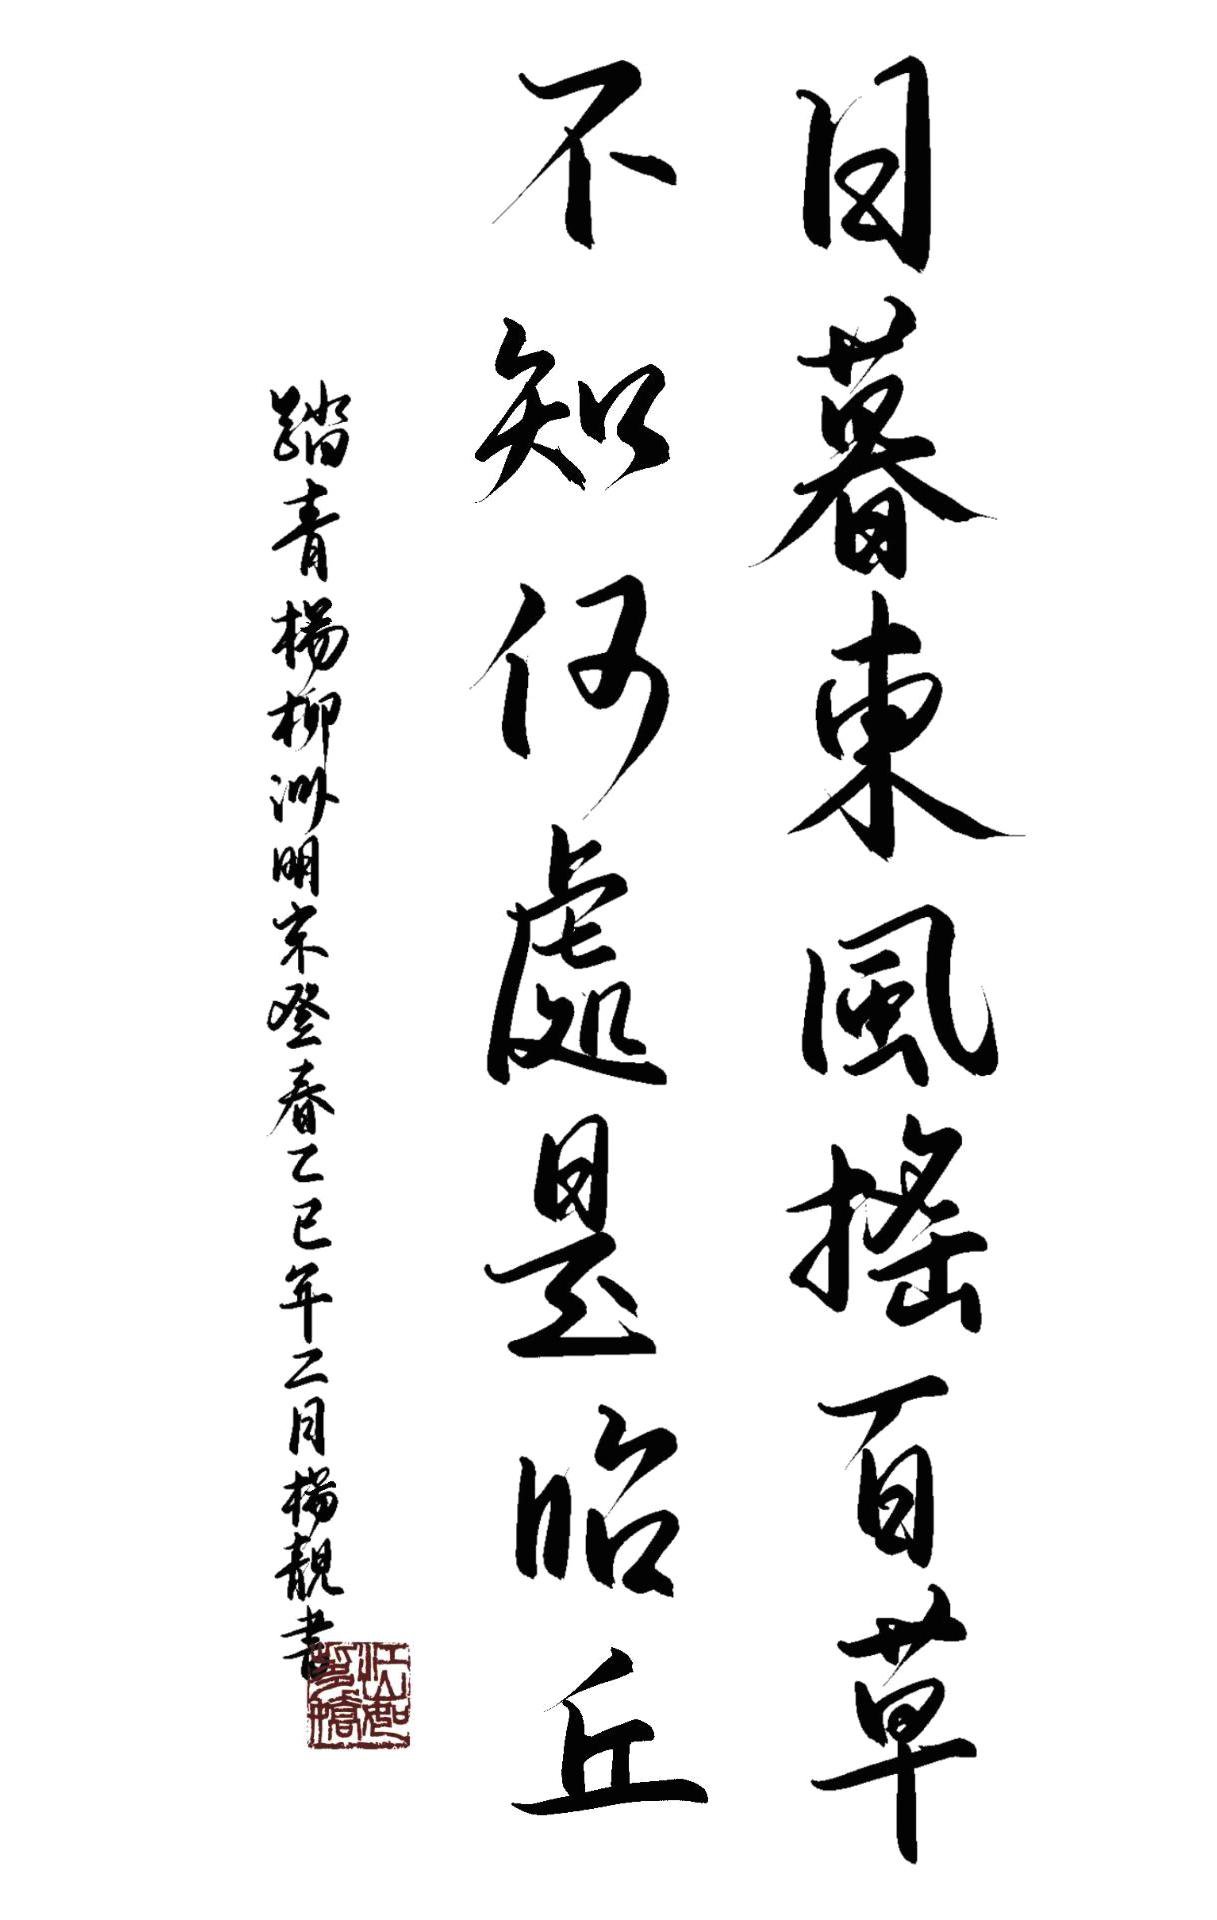 日暮東風搖百草
不知何處是昭丘
踏青楊柳洲明宋登春乙巳年二月楊靚書
江山如